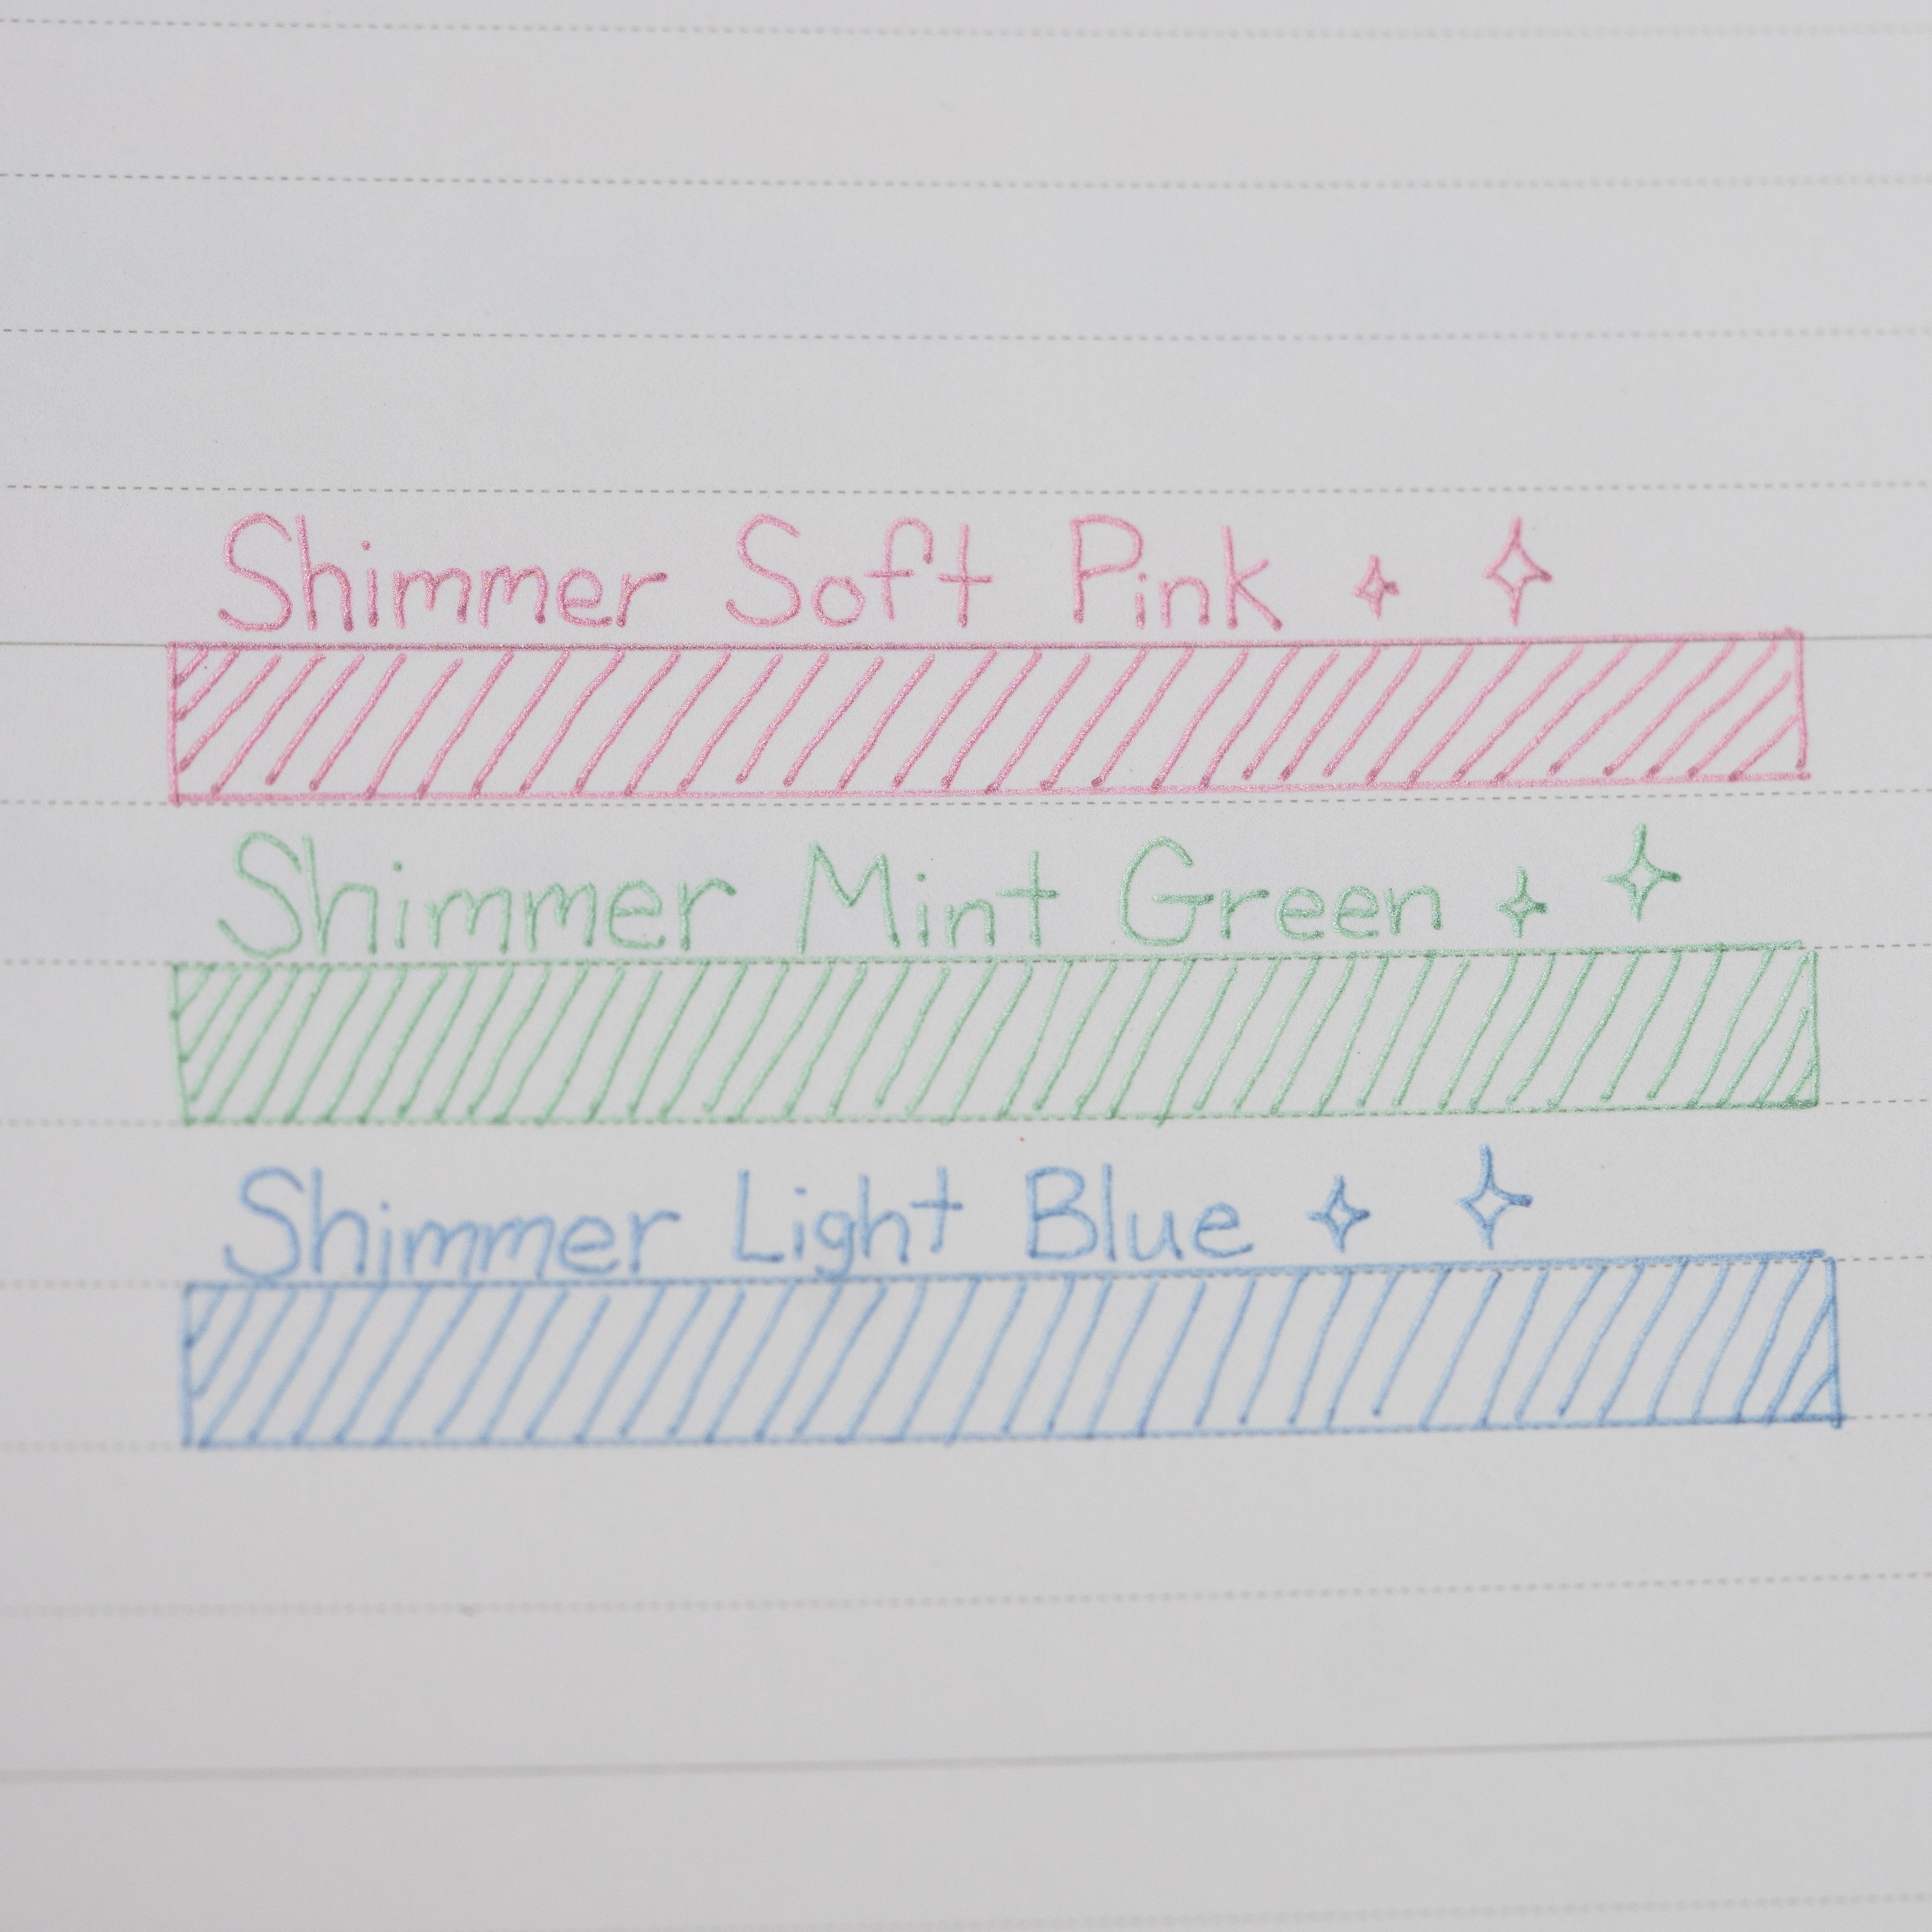 Shimmer Soft Pink
Shimmer Mint Green
Shimmer Light Blue